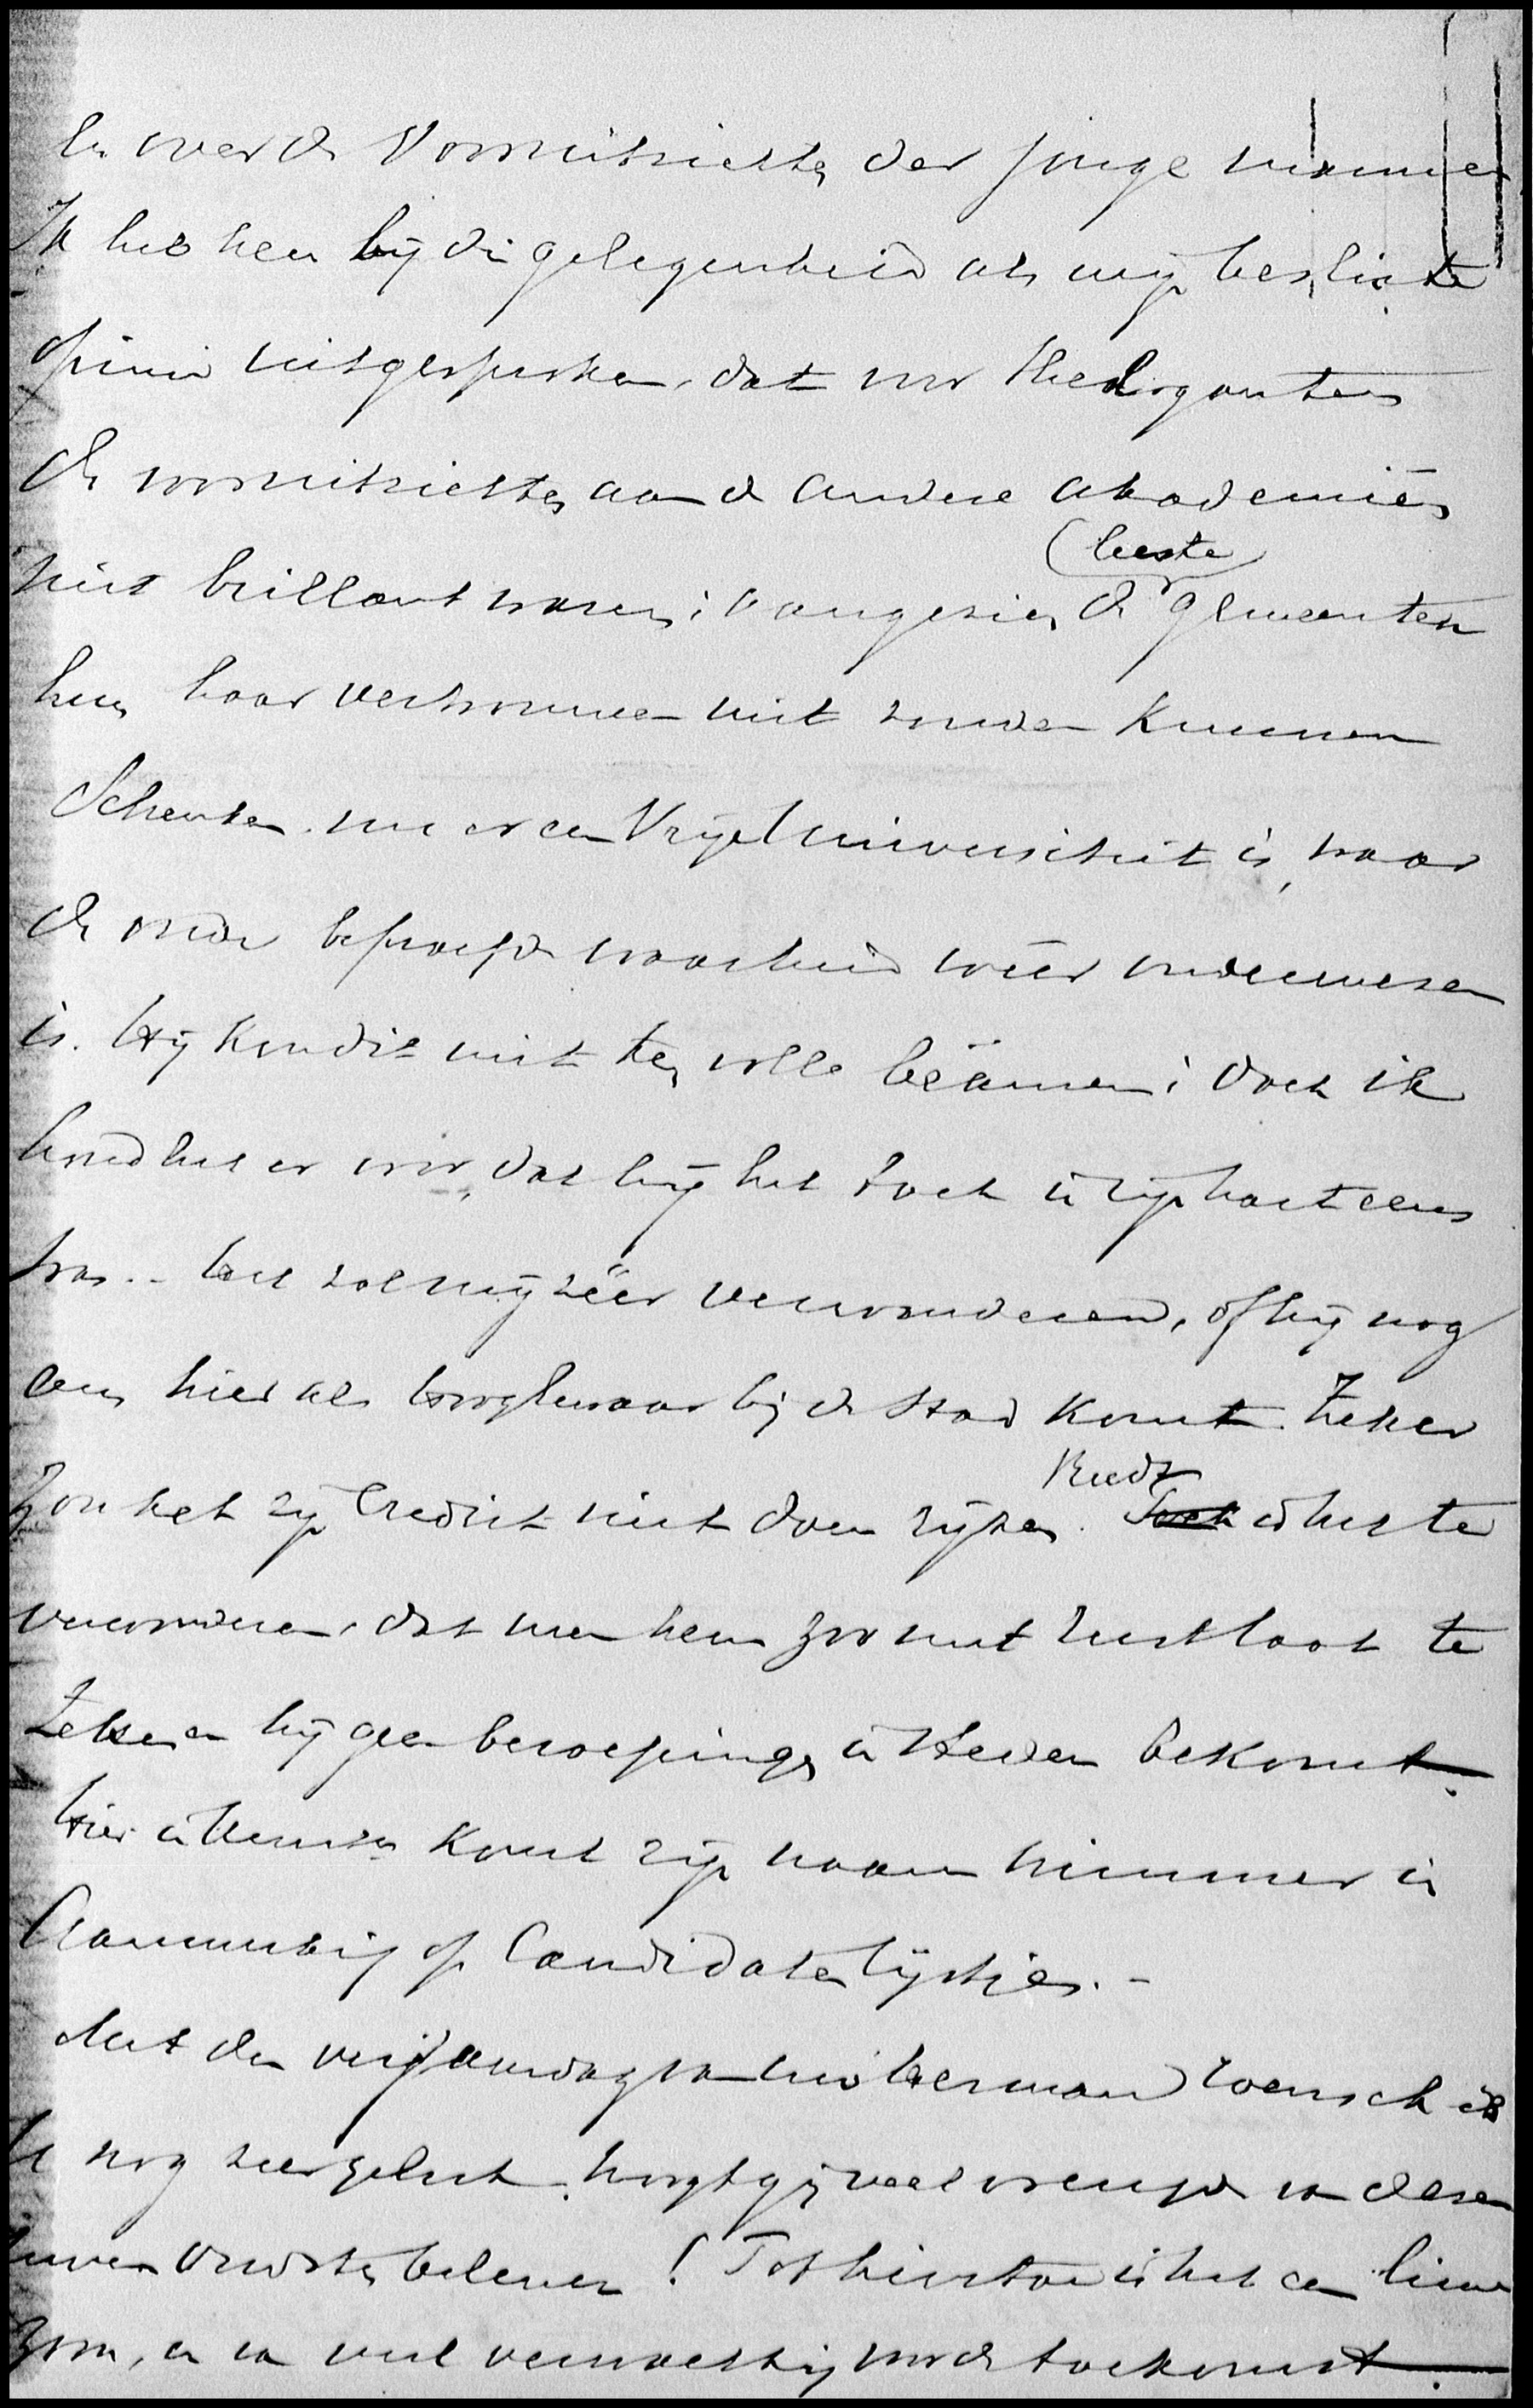 en over de vooruitzichten der jonge mannen
Ik heb hem bij die gelegenheid als mijn besliste
opinie uitgesproken, dat voor theologanten
de vooruitzichten aan de andere akademiën
niet brillant waren; aangezien de (beste) gemeenten
hun haar vertrouwen niet zouden kunnen
schenken. nu er een Vrije Universiteit is, waar
de oude beproefde waarheid wéér onderwezen
is. Hij kon dit niet ten volle beämen; doch ik
houd het er voor, dat hij het toch in zijn hart eens
was. - Het zal mij zéér verwonderen, of hij nog
eens hier als hoogleraar bij de stad komt. Zeker
zou het zijn Crediet niet doen rijzen. Reeds is het te
verwonderen, dat men hem zoo met rust laat te
en hij geen beroepingen in steden bekomt.
Hier in komt zijn naam nimmer in
Aanmerking op Candidaten lijstjes. -
Met den verjaardag van uw Herman wensch ik
U nog zeer geluk. Moogt gij veel vreugde van dezen
uwen oudsten beleven! Tot hiertoe is het een lieve
zoon, en van veel verwachting voor de toekomst.